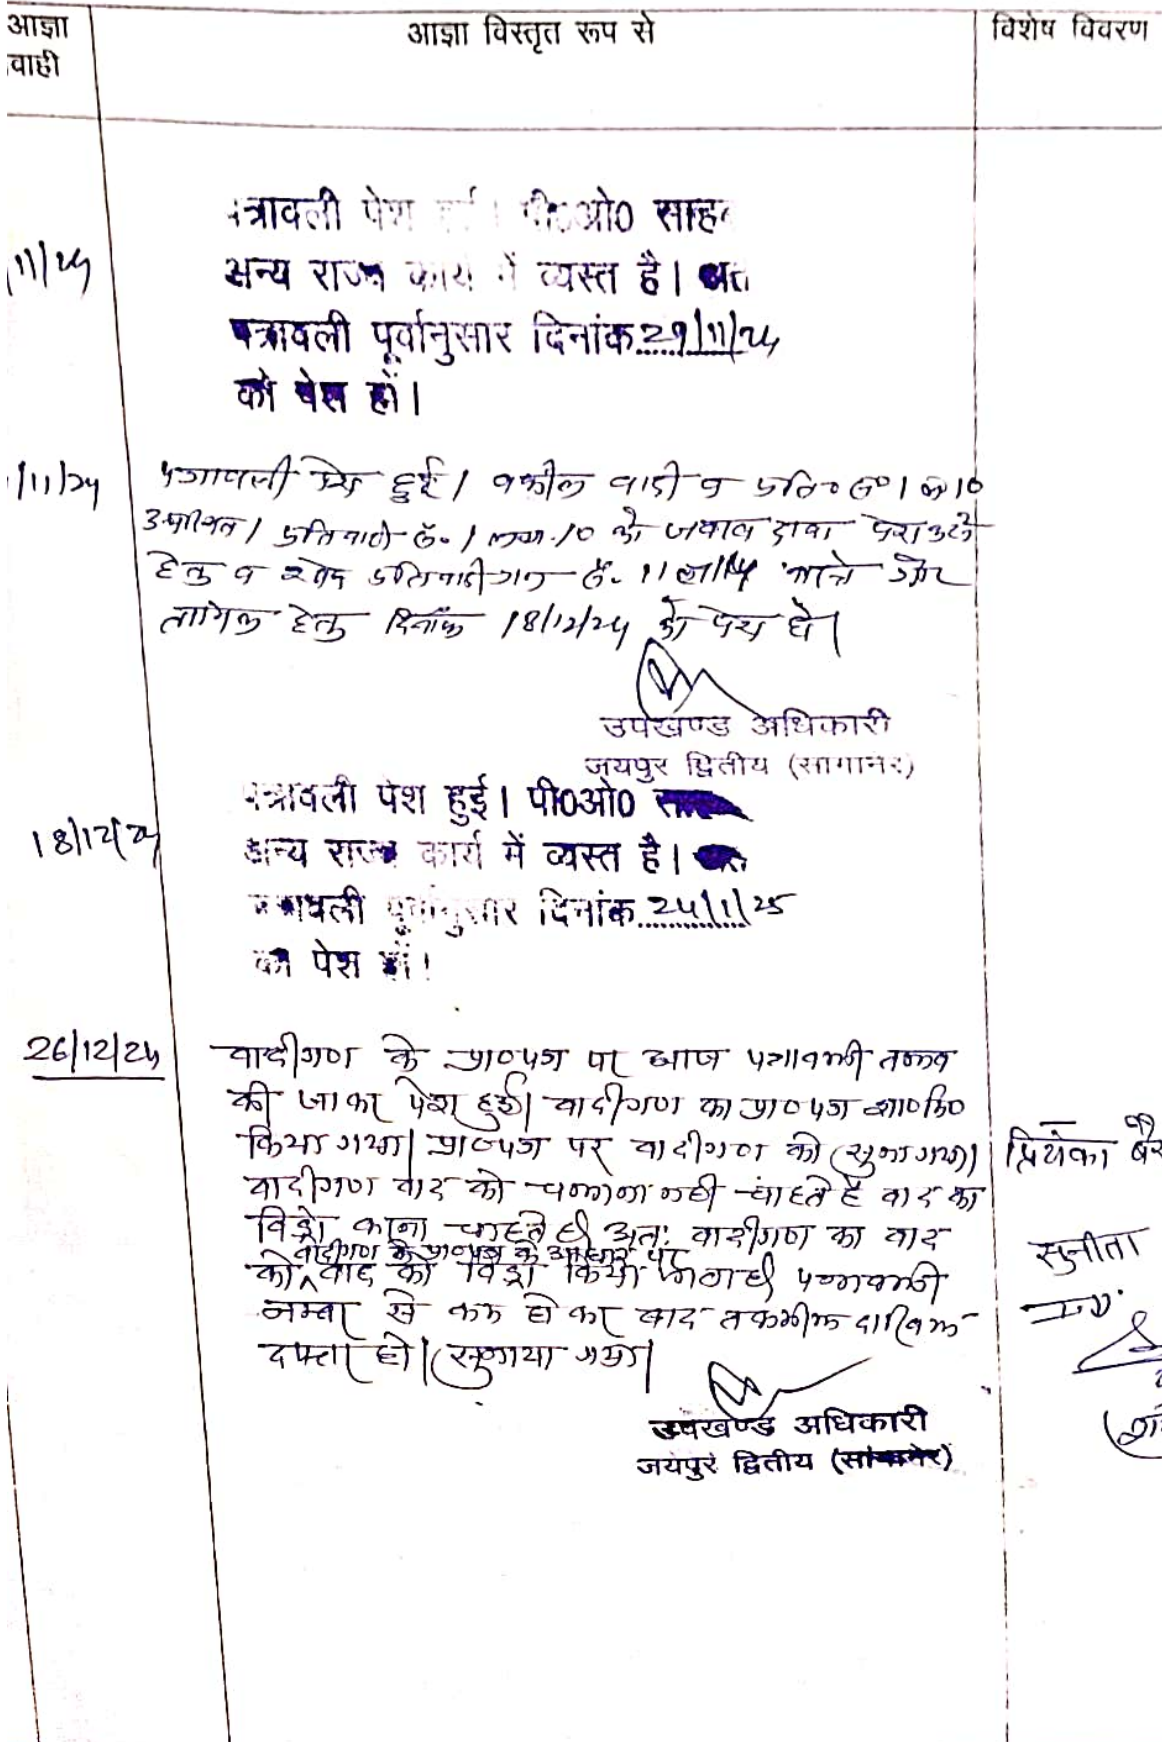 आज्ञा
वाही
आज्ञा विस्तृत रूप से
विशेष विवरण
पत्रावली पेश हुई। पी0ओ0 साहब
11/24
अन्य राज्य कार्य में व्यस्त है। अतः
पत्रावली पूर्वानुसार दिनांक 29/11/24
को पेश हों।
/11/24
पत्रावली पेश हुई। वकील वादी व प्रति० सं० 1 ता 10
उपस्थित। प्रतिवादी सं. 1 लगा. 10 को जवाब दावा पेश करने
हेतु व शेष प्रतिवादीगण सं. 11 ता 14
तामिल हेतु दिनांक 18/12/24 को पेश हो।
उपखण्ड अधिकारी
जयपुर द्वितीय (सांगानेर)
18/12/24
पत्रावली पेश हुई। पी0ओ0
अन्य राज्य कार्य में व्यस्त है। अतः
पत्रावली पूर्वानुसार दिनांक 24/1/25
को पेश हों।
26/12/24
वादीगण के प्रा०पत्र पर आज पत्रावली तलब
की जाकर पेश हुई। वादीगण का प्रा०पत्र शा०मि०
किया गया। प्रा०पत्र पर वादीगण को सुना गया।
वादीगण वाद को चलाना नही चाहते है वाद का
विड्रो करना चाहते है। अतः वादीगण का वाद
वादीगण के प्रा०पत्र के आधार पर
को वाद को विड्रो किया जाता है। पत्रावली
नम्बर से कम हो कर बाद तकमील दाखिल
दफ्तर हो। सुनाया गया।
उपखण्ड अधिकारी
जयपुर द्वितीय (सांगानेर)
प्रियंका
सुनीता